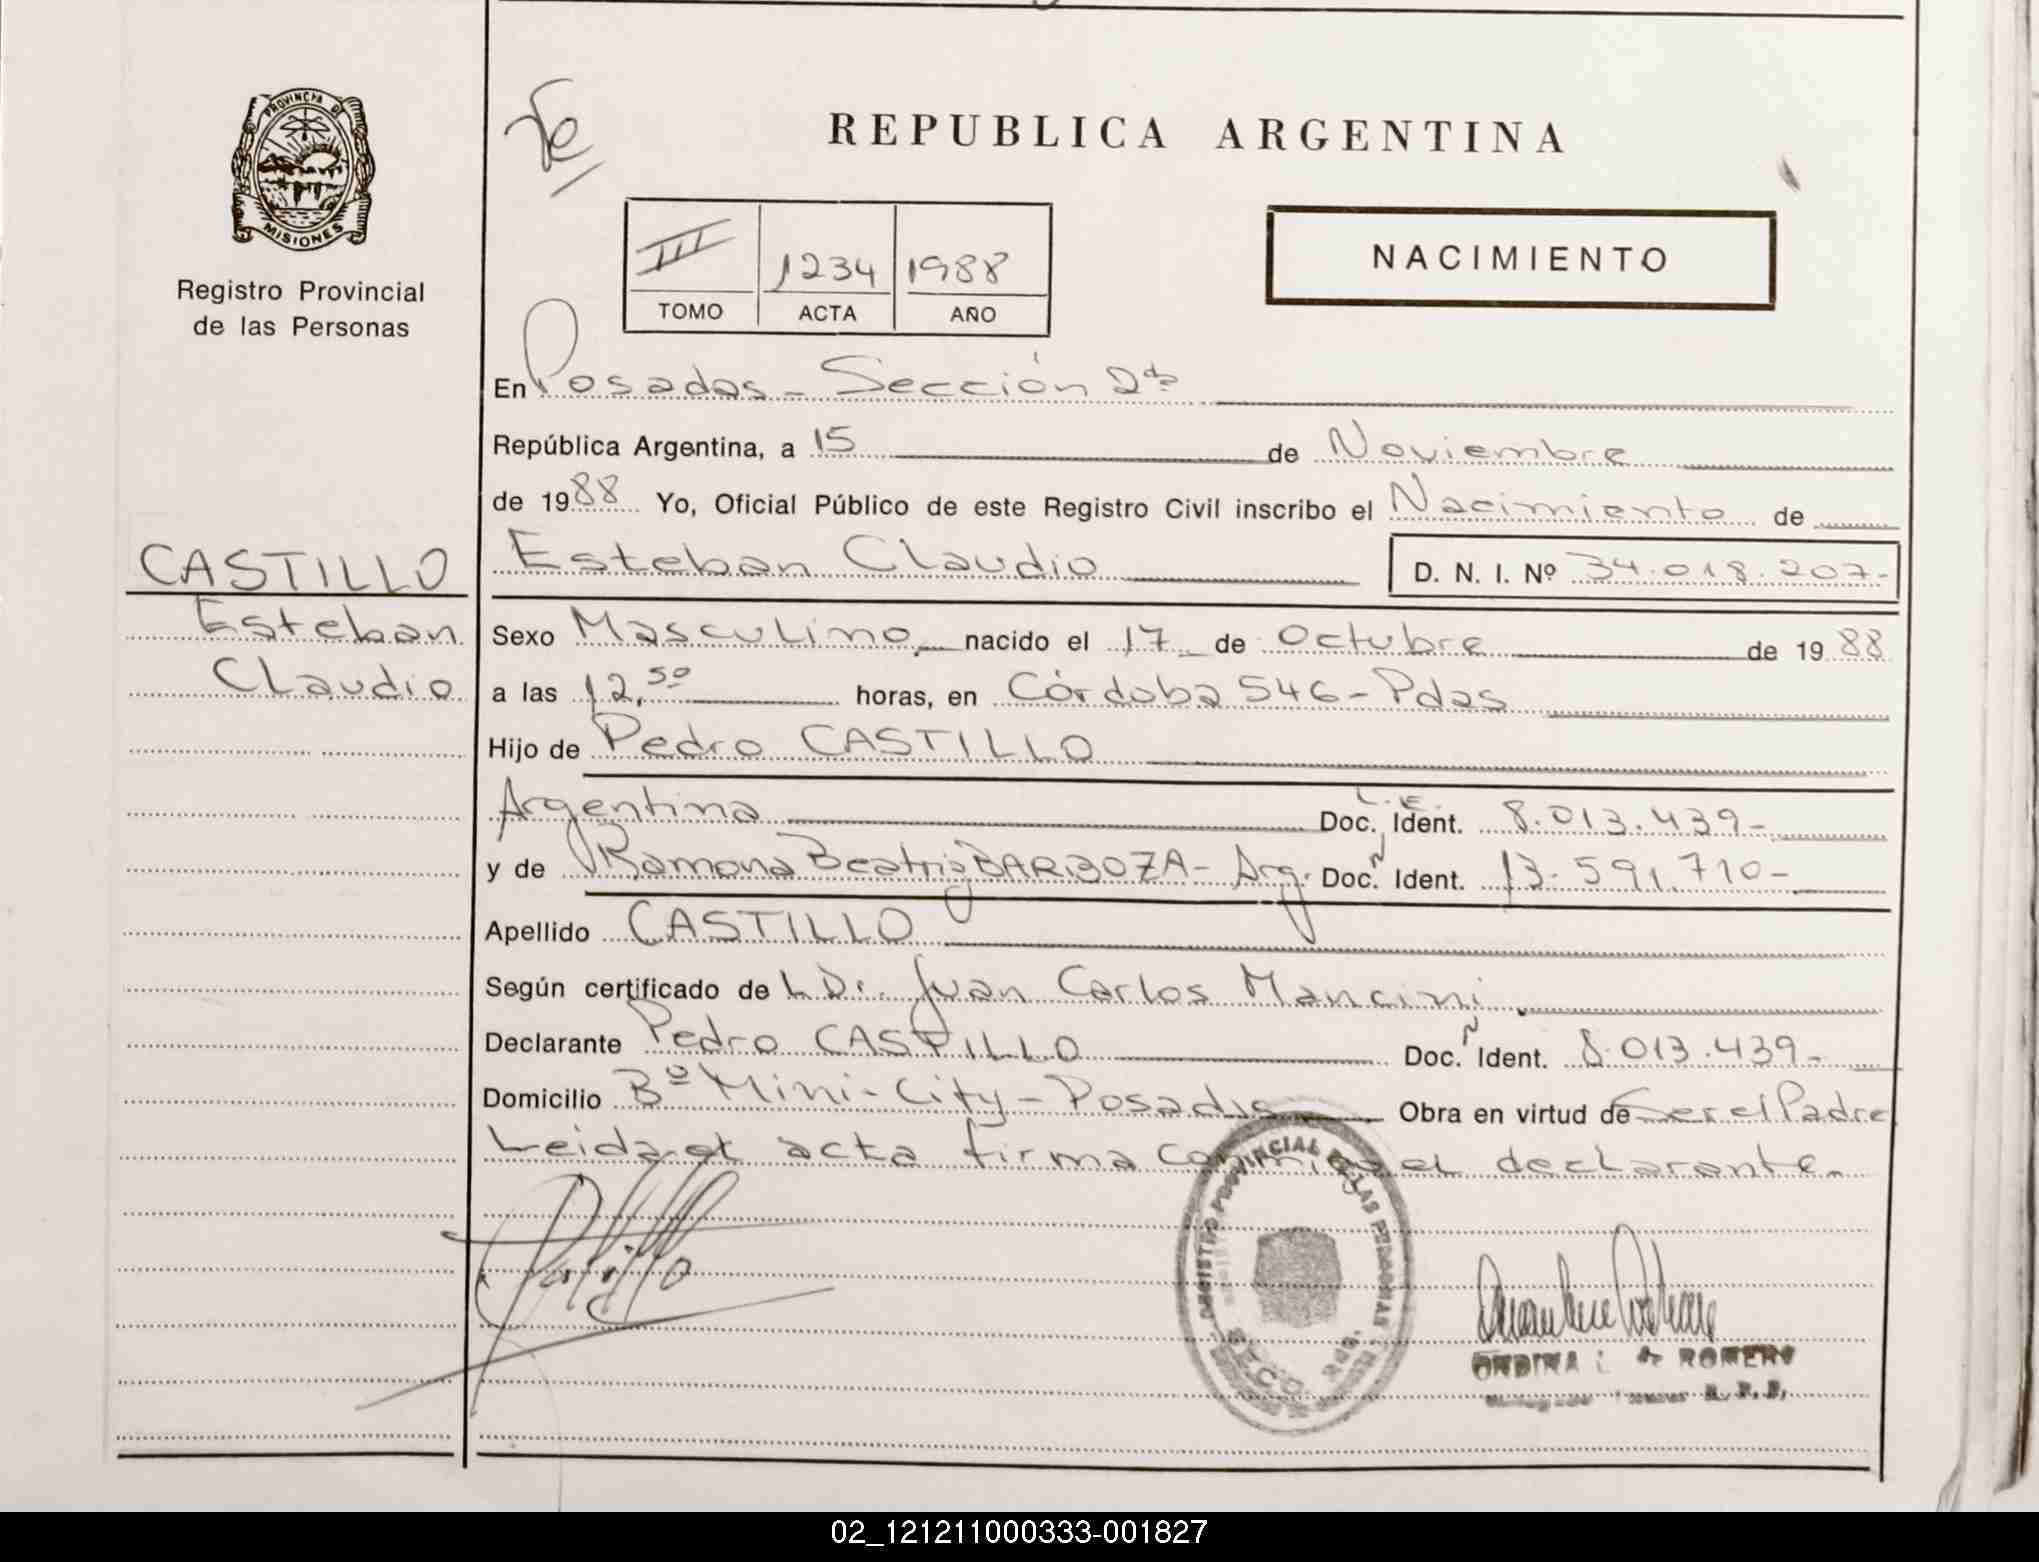 PROVINCIA DE
MISIONES
Registro Provincial
de las Personas
REPUBLICA ARGENTINA
III 1234 1988
TOMO ACTA AÑO
NACIMIENTO
En Posadas - Sección 2da
República Argentina, a 15 de Noviembre
de 1988 Yo, Oficial Público de este Registro Civil inscribo el Nacimiento de
CASTILLO
Esteban
Claudio
Esteban Claudio D. N. I. Nº 34.018.207-
Sexo Masculino nacido el 17 de Octubre de 1988
a las 12,50 horas, en Córdoba 546 - Pdas
Hijo de Pedro CASTILLO
Argentina L.E. Doc. Ident. 8.013.439-
y de Ramona Beatriz BARBOZA - Arg. Doc. N Ident. 13.591.710-
Apellido CASTILLO
Según certificado de L Dr. Juan Carlos Mancini
Declarante Pedro CASTILLO Doc. N Ident. 8.013.439-
Domicilio Bº Mini-City - Posadas Obra en virtud de Ser el Padre
Leida el acta firma conmigo el declarante.
REGISTRO PROVINCIAL DE LAS PERSONAS
ONDINA de ROMERO
R. P. P.
02_121211000333-001827